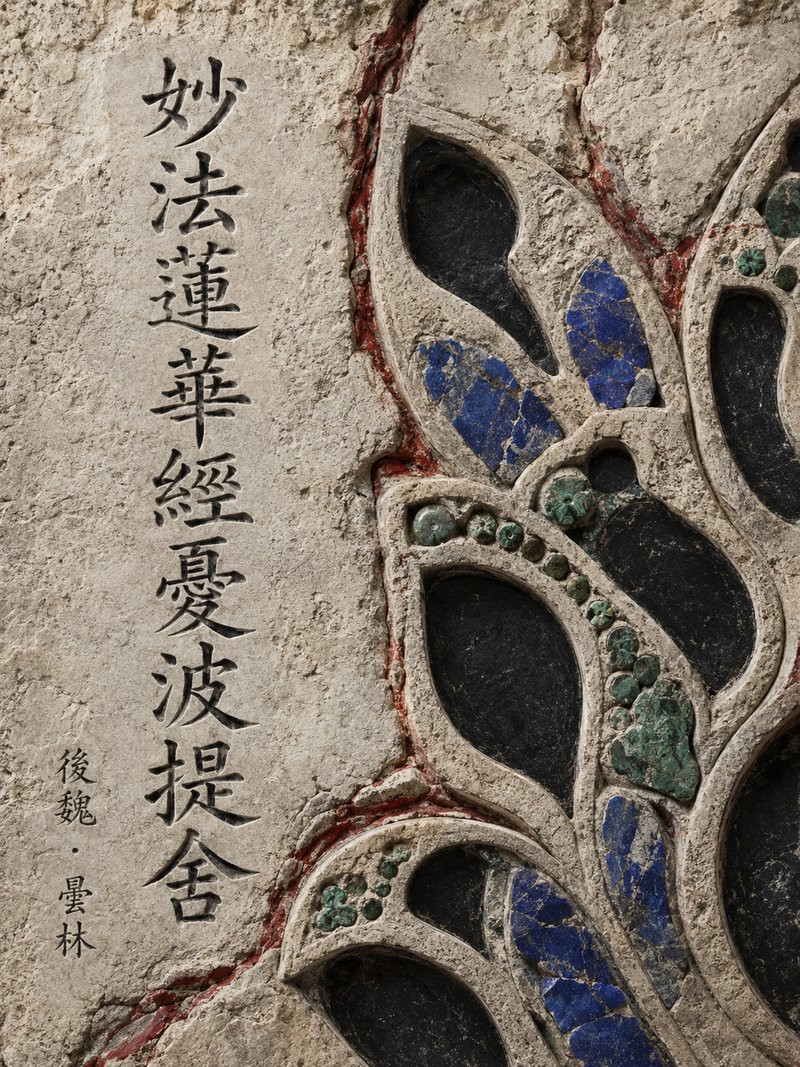 妙法蓮華經憂波提舍
後魏·曇林